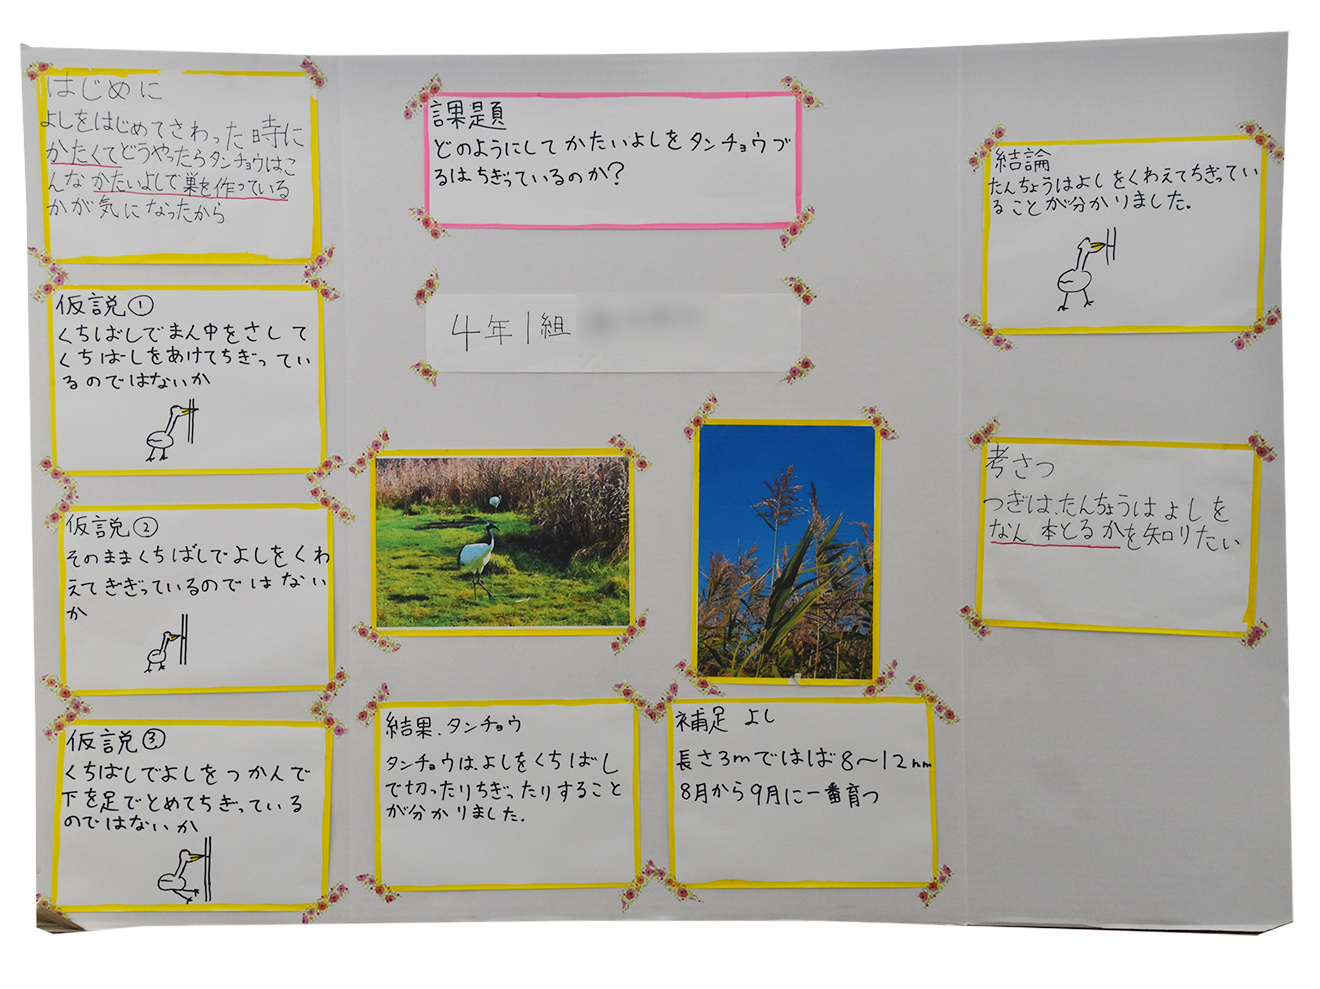 はじめに
よしをはじめてさわった時に
かたくてどうやったらタンチョウはこ
んなかたいよしで巣を作っている
かが気になったから
仮説①
くちばしでまん中をさして
くちばしをあけてちぎってい
るのではないか
仮説②
そのままくちばしでよしをくわ
えてぎぎっているのではない
か
仮説③
くちばしでよしをつかんで
下を足でとめてちぎっている
のではないか
課題
どのようにしてかたいよしをタンチョウづ
るはちぎっているのか?
4年1組
結果、タンチョウ
タンチョウは、よしをくちばし
で切ったりちぎったりすること
が分かりました.
補足 よし
長さ3mではば8～12mm
8月から9月に一番育つ
結論
たんちょうはよしをくわえてちぎってい
ることが分かりました.
考さつ
つぎは、たんちょうはよしを
なん本とるかを知りたい